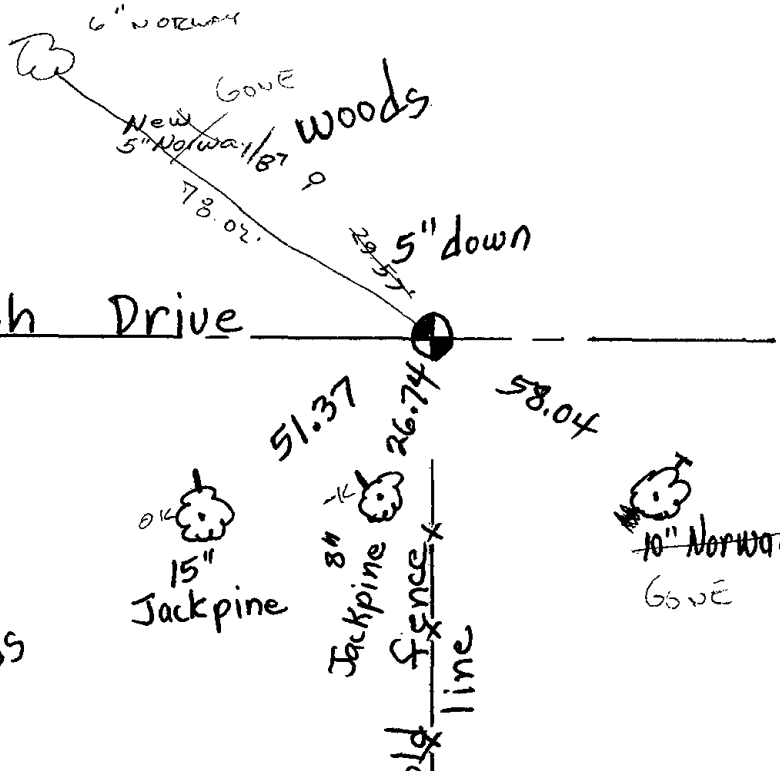 6" NORWAY
GONE
woods
New
5" Norway 1/87
78.02
29.57
5" down
h Drive
51.37
26.74
58.04
OK
15"
Jackpine
8"
Jackpine
fence
line
10" Norwa
GONE
s
old